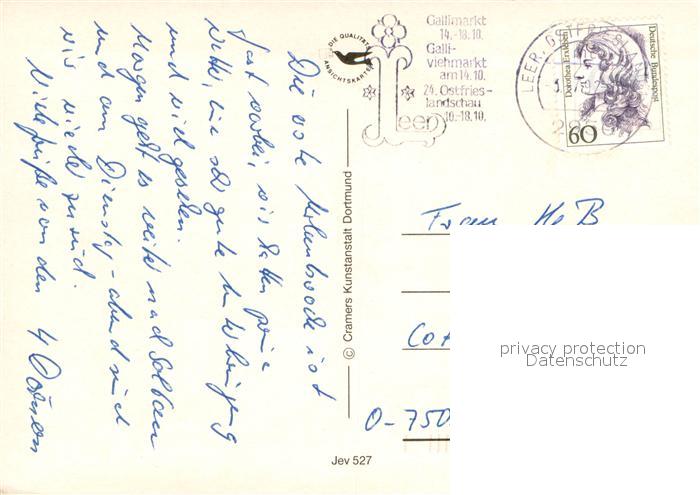 Die erste Urlaubswoche ist
fast vorbei, wir hatten prima
Wetter, eine sehr gute Unterbringung
und viel gesehen.
Morgen geht es weiter nach Soltau
und am Dienstag-abend sind
wir wieder zurück.
Viele Grüße von den 4
DIE QUALITÄTS
ANSICHTSKARTE
Gallimarkt
14.-18.10.
Galli-
viehmarkt
am 14.10.
24. Ostfries-
landschau
10.-18.10.
Leer
LEER, OSTFRIESLAND
Deutsche Bundespost
Dorothea Erxleben
60
© Cramers Kunstanstalt Dortmund
Frau
O-750
privacy protection
Datenschutz
Jev 527